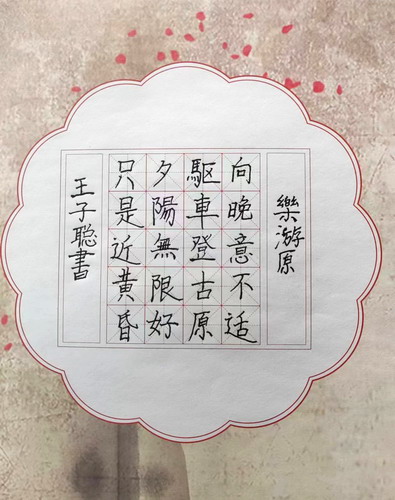 樂游原
向晚意不适
驅車登古原
夕陽無限好
只是近黄昏
王子聪書